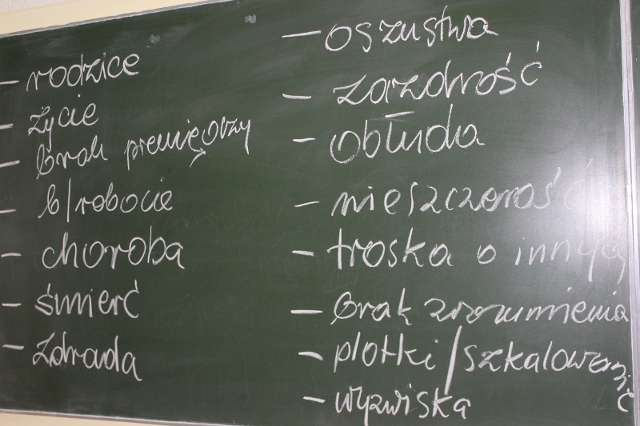 - rodzice
- życie
- brak pieniędzy
- b/robocie
- choroba
- śmierć
- zdrada
- oszustwa
- zazdrość
- obłuda
- nieszczerość
- troska o innych
- brak zrozumienia
- plotki/szkalować
- wyzwiska